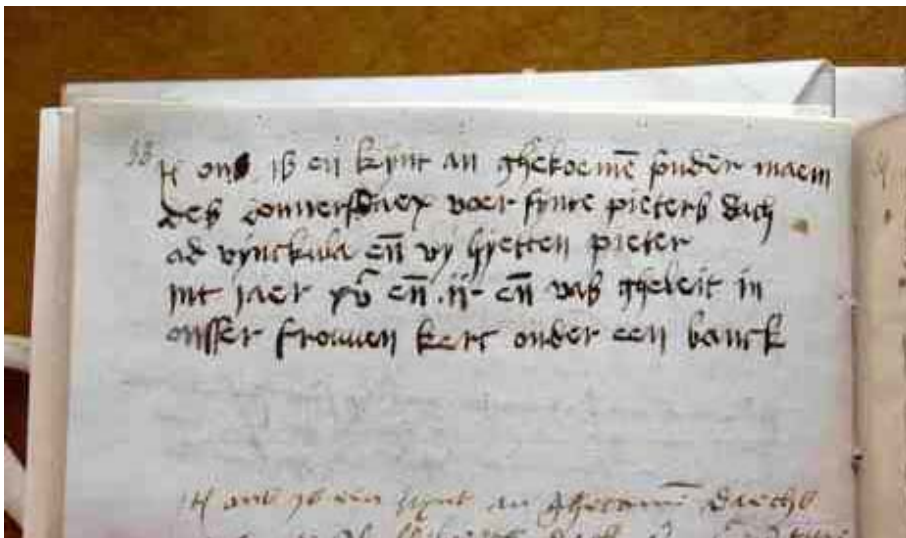 33
It ons is en kynt an ghekoemē sonder naem
des donnersdaex voer synte pieters dach
ad vyncula eñ wy hyetten pieter
int jaer xvͨ eñ .ij. eñ was gheleit in
onsser frouwen kerc onder een banck
It ons is een kynt an ghecomē